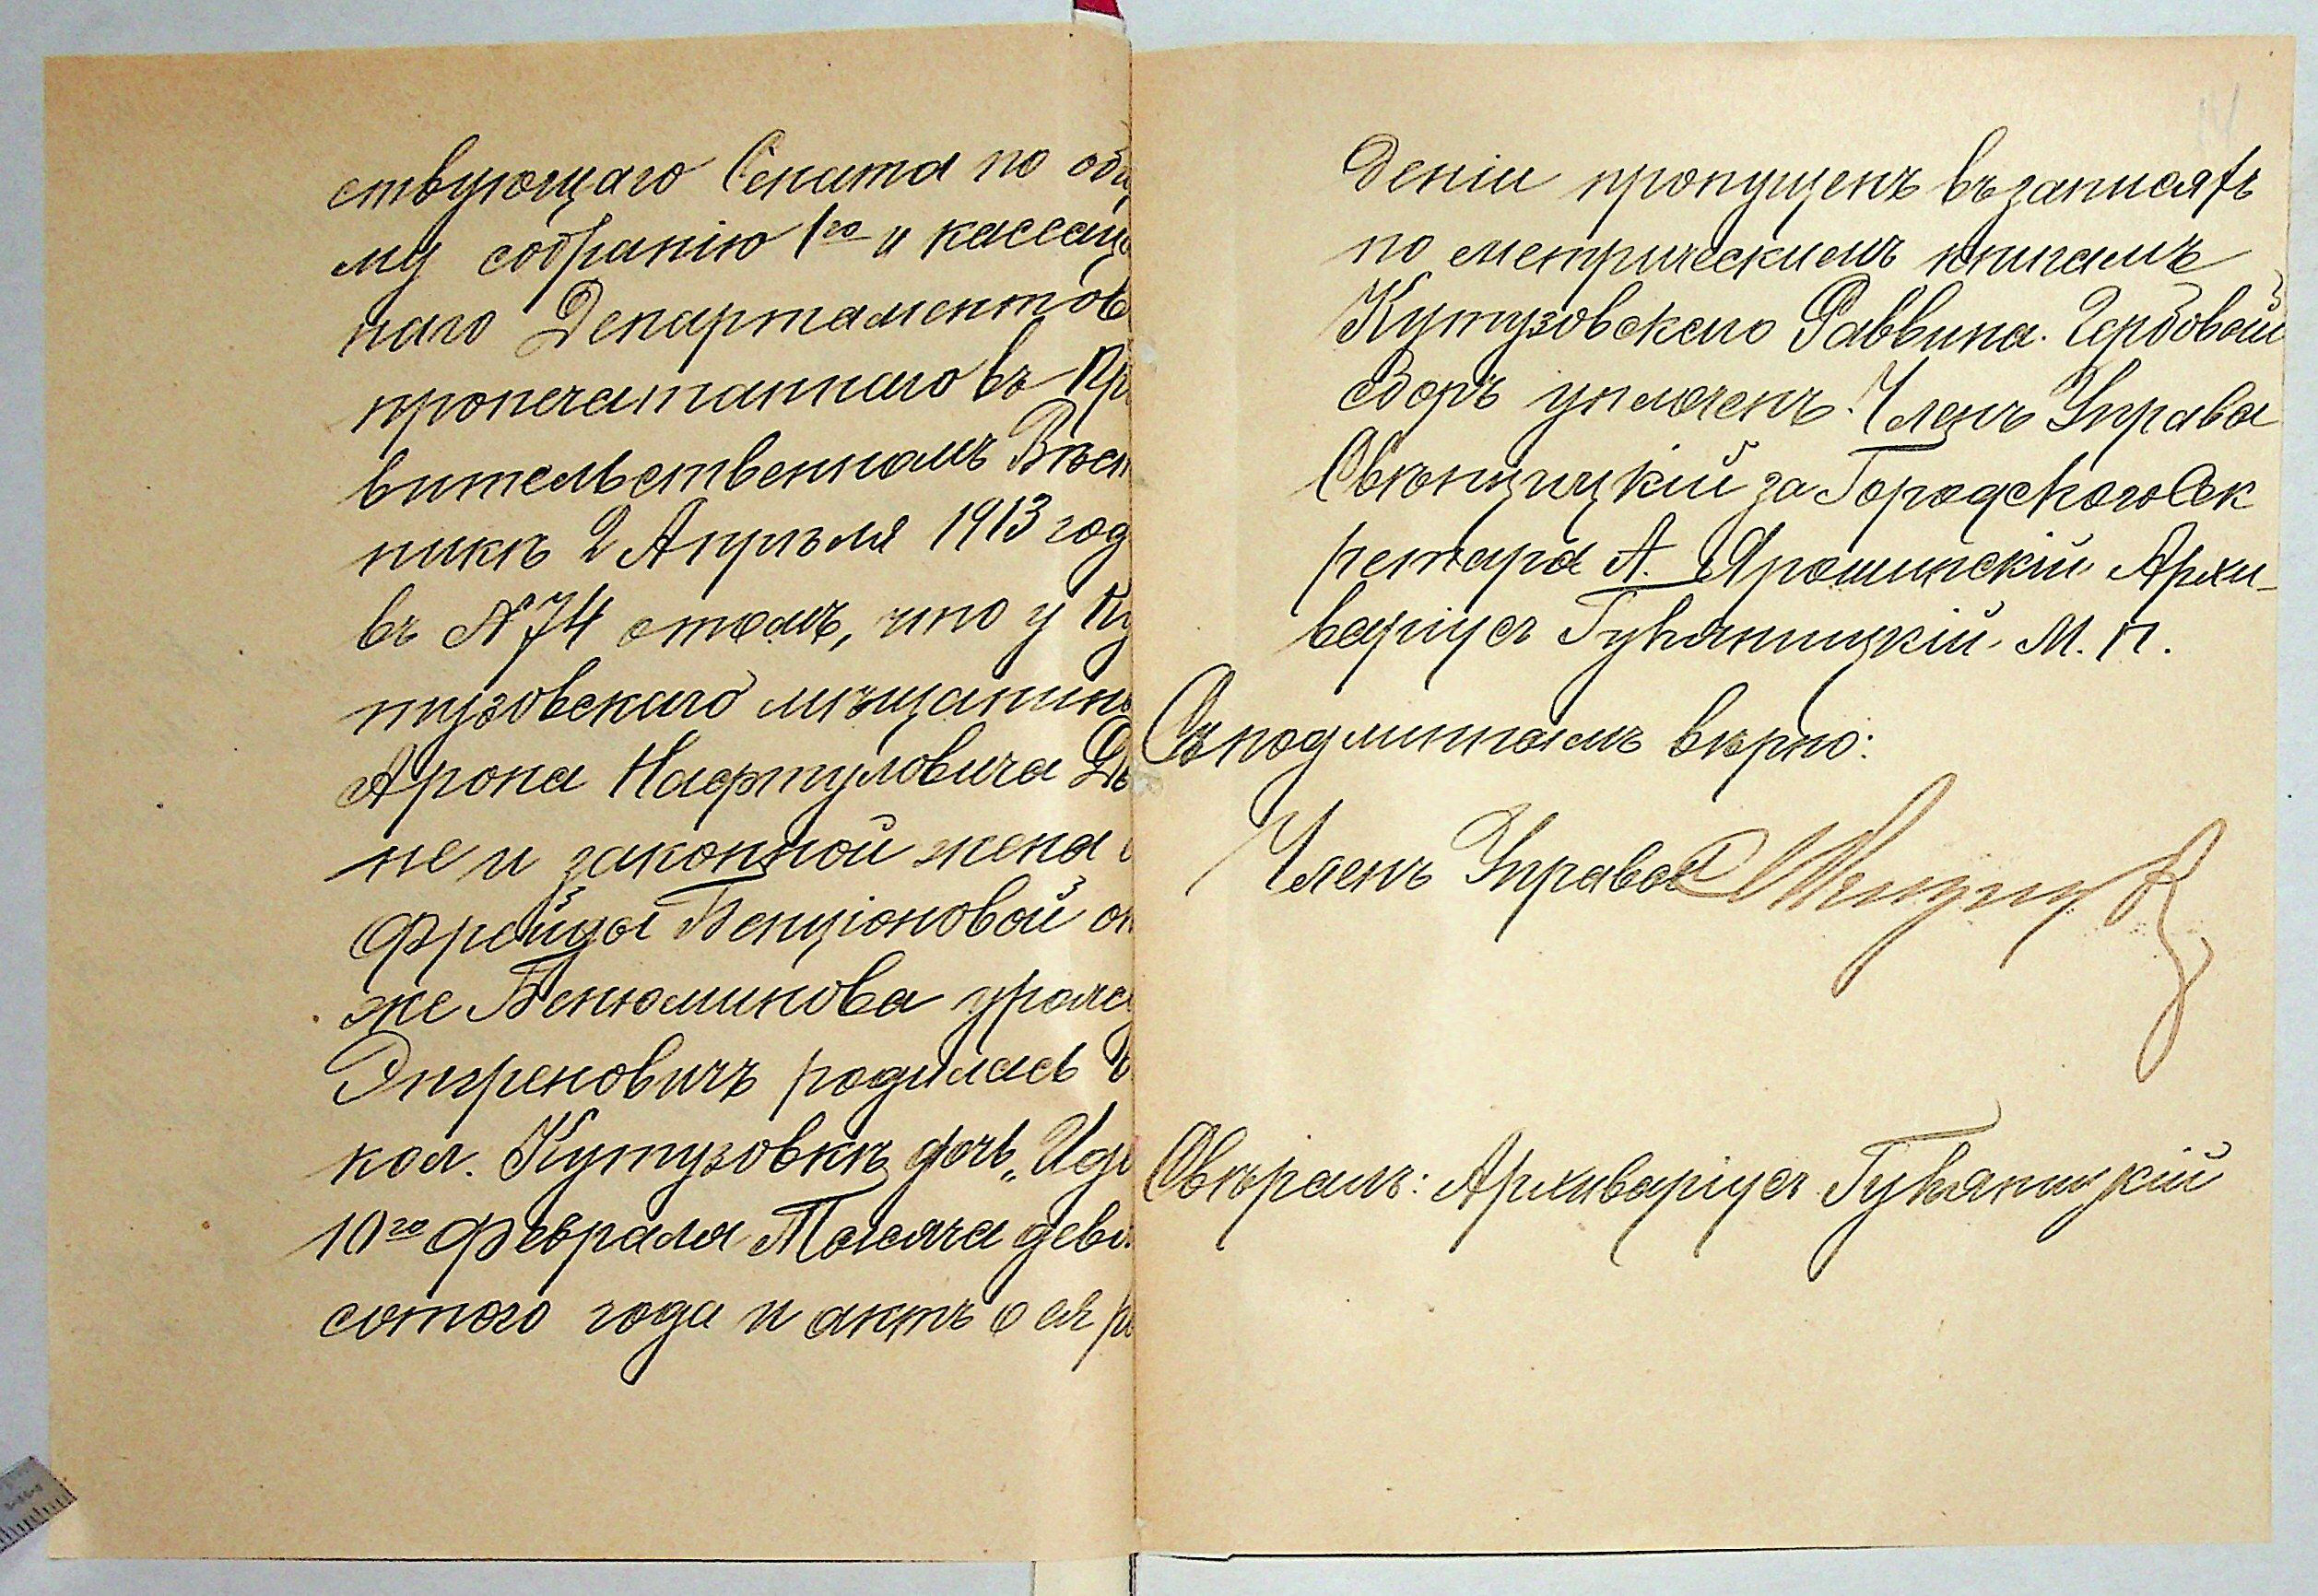 ствующаго Сената по общ
му собранію 1го и кассац
наго Департаментов
пропечатаннаго въ Пр
вительственномъ Вѣст
никѣ 2 Апрѣля 1913 год
въ № 74 о томъ, что у Ку
тузовскаго мѣщанин
Арона Нафтуловича
не и законной жена
Фрейды Бенціоновой он
же Бенюминова урож
Энгреновичъ родилась въ
кол. Кутузовкѣ дочь „Иде
10го Февраля Тысяча девя
сотого года и актъ о ея р
деніи пропущенъ въ записяхъ
по метрическимъ книгамъ
Кутузовскаго Раввина. Гербовый
сборъ уплоченъ. Членъ Управы
Свѣнцицкій за Городского Сек
ретаря А. Ярошинскій Архи-
варіусъ Гульяницкій. М. П.
Съ подлиннымъ вѣрно:
Членъ Управы
Свѣрялъ: Архиваріусъ Гульяницкій